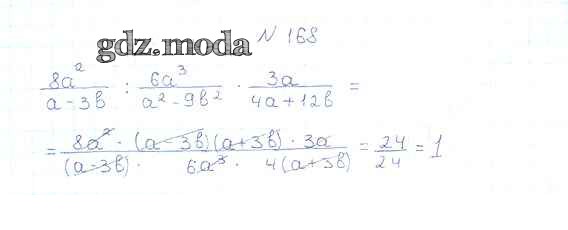 N 168
gdz.moda
8a² / (a - 3в) : 6a³ / (a² - 9в²) · 3a / (4a + 12в) =
= 8a² · (a - 3в)(a + 3в) · 3a / ((a - 3в) · 6a³ · 4(a + 3в)) = 24/24 = 1